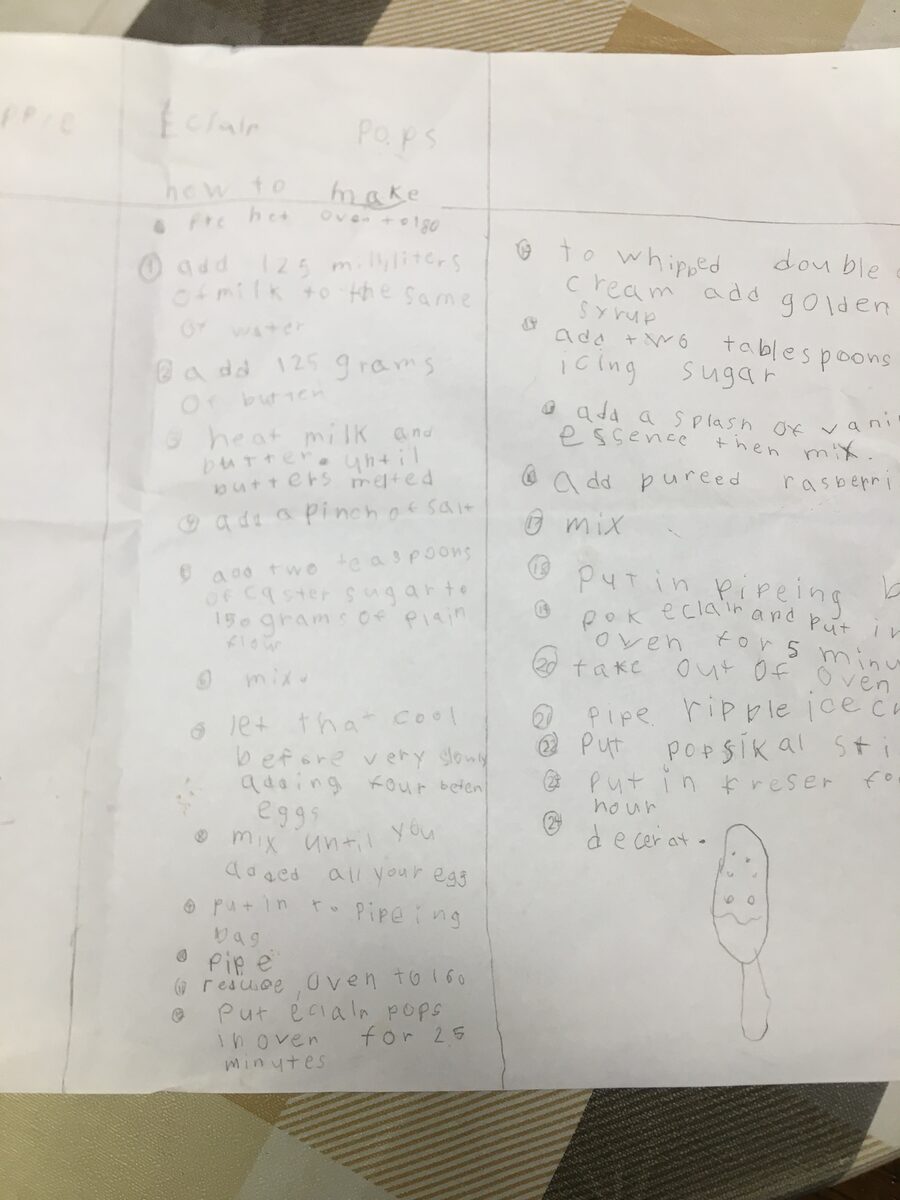 Eclair pops
how to make
pre het oven to 180
① add 125 milliliters
of milk to the same
of water
② add 125 grams
of butter
3 heat milk and
butter. until
butters melted
④ add a pinch of salt
5 add two teaspoons
of caster sugar to
150 grams of plain
flour
6 mix.
let that cool
before very slowly
adding four beten
eggs
mix until you
added all your egg
put in to pipeing
bag
pipe
⑪ reduce oven to 160
put eclair pops
in oven for 25
minutes
to whipped double
cream add golden
syrup
add two tablespoons
icing sugar
add a splash of vani
essence then mix.
add pureed rasberri
⑰ mix
⑱ put in pipeing b
⑲ pok eclair and put in
oven for 5 minu
⑳ take out of oven
㉑ pipe ripple ice cr
㉒ put popsikal sti
put in freser fo
hour
㉔ decerat.